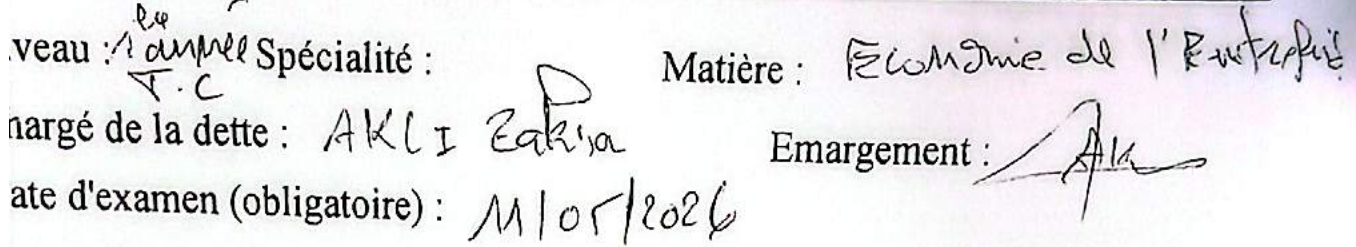 veau : 1ère année Spécialité : Matière : Economie de l'Entreprise
T.C
hargé de la dette : AKLI Zakia Emargement :
ate d'examen (obligatoire) : 11/05/2026